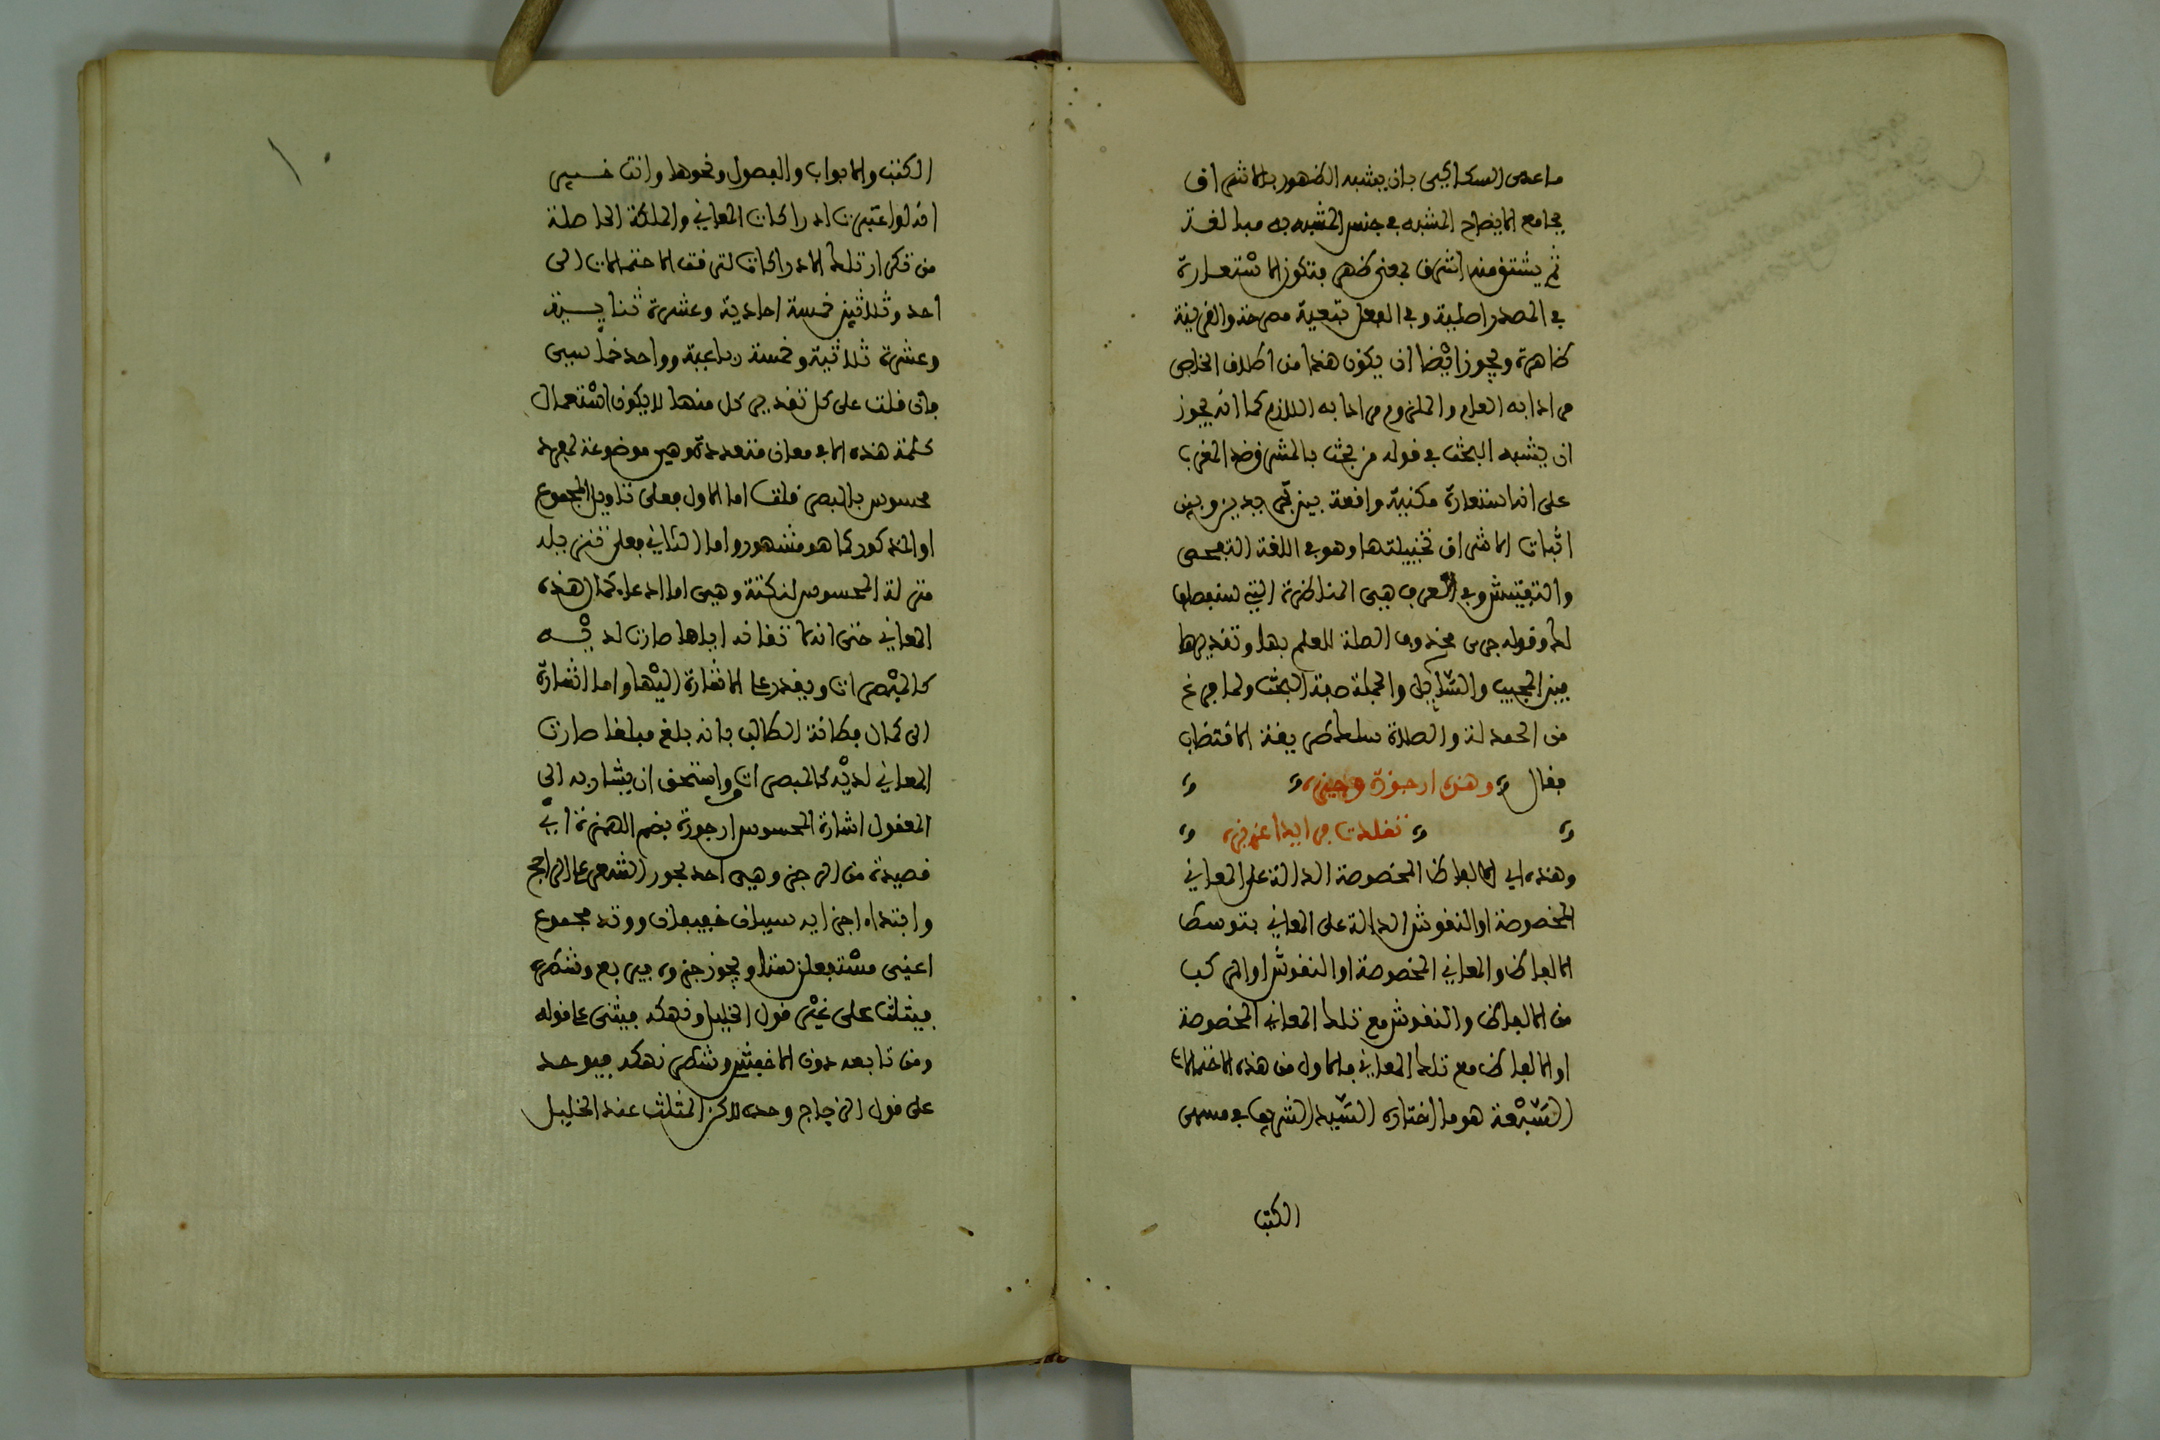 ما عدى السكاكي بان يشبه الظهور بالاشراق
بجامع الايضاح المشبه في جنس المشبه به مبالغة
ثم يشتق منه اشرق بمعنى ظهر فتكون الاستعارة
في المصدر اصلية وفي الفعل تبعية مصرحة والقرينة
ظاهرة ويجوز ايضا ان يكون هذا من اطلاق الخاص
مرادا به العام والملزوم مرادا به اللازم كما انه يجوز
ان يشبه البحث في قوله من بحث بالمشرق ضد المغرب
على انه استعارة مكنية واقعة بين تجريدين وبين
اثبات الاشراق تخييلتها وهو في اللغة التفحص
والتفتيش وفي العرف هي المناظرة التي
له وقوله جرى محذوف الصلة للعلم بها وتقديرها
بين المجيب والسائل والجملة صفة البحث ولما فرغ
من الحمدلة والصلاة سلك طريقة الاقتضاب
فقال وهذه ارجوزة وجيزه
تقلدت فرايدا عزيزه
وهذه اي الالفاظ المخصوصة الدالة على المعاني
المخصوصة او النقوش الدالة على المعاني بتوسط
الالفاظ والمعاني المخصوصة او النقوش او المركب
من الالفاظ والنقوش مع تلك المعاني المخصوصة
او الالفاظ مع تلك المعاني والاول من هذه الاحتمالات
السبعة هو ما اختاره السيد الشريف في مسمى
الكتب
الكتب والابواب والفصول ونحوها وانت خبير
انه لو اعتبرت ادراكات المعاني والملكة الحاصلة
من تكرار تلك الادراكات لترقت الاحتمالات الى
احد وثلاثين خمسة احادية وعشرة ثنايية
وعشرة ثلاثية وخمسة رباعية وواحد خماسي
فان قلت على كل تقدير كل منها لا يكون استعمال
كلمة هذه الا في معان متعددة وهي موضوعة لمفرد
محسوس بالبصر قلت اما الاول فعلى تاويل المجموع
او المذكور كما هو مشهور واما الثاني فعلى تنزيله
منزلة المحسوس لنكتة وهي اما ادعاء كمال هذه
المعاني حتى انها اياها صارت لديه
كالمبصرات ويقدر على الاشارة اليها واما اشارة
الى كمال فطانة الطالب بانه بلغ مبلغا صارت
المعاني لديه كالمبصرات واستحق ان يشار به الى
المعقول اشارة المحسوس ارجوزة بضم الهمزة اي
قصيدة من الرجز وهي احد بحور الشعر على الراجح
وابتداء اجزايه سببان خفيفان ووتد مجموع
اعني مستفعلن ستا ويجوز جزوه فيربع وشطره
فيثلث على غير قول الخليل ونهكه فيثنى على قوله
ومن تابعه دون الاخفش وشطر نهكه فيوحد
على قول الزجاج وحده لاكن المثلث عند الخليل